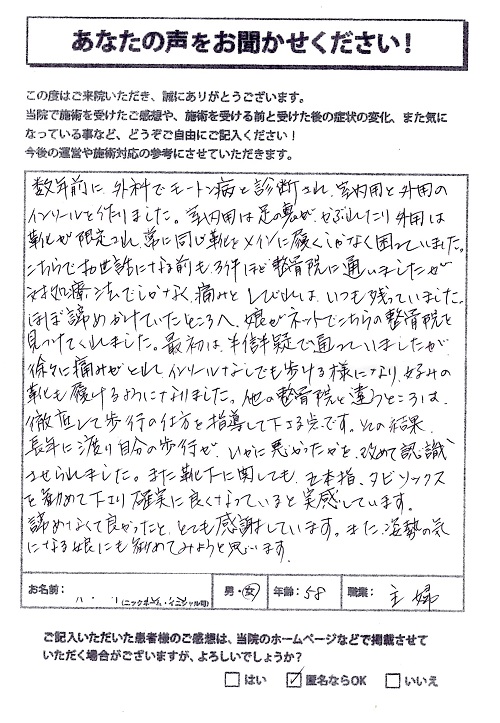 あなたの声をお聞かせください！
この度はご来院いただき、誠にありがとうございます。
当院で施術を受けたご感想や、施術を受ける前と受けた後の症状の変化、また気に
なっている事など、どうぞご自由にご記入ください！
今後の運営や施術対応の参考にさせていただきます。
数年前に、外科でモートン病と診断され、室内用と外用の
インソールを作りました。室内用は足の裏が、かぶれたり外用は
靴が限定され、常に同じ靴をメインに履くしかなく困っていました。
こちらでお世話になる前も、3件ほど整骨院に通いましたが
対処療法でしかなく、痛みとしびれは、いつも残っていました。
ほぼ諦めかけていたところへ、娘がネットでこちらの整骨院を
見つけてくれました。最初は、半信半疑で通っていましたが
徐々に痛みがとれ、インソールなしでも歩ける様になり、好みの
靴も履けるようになりました。他の整骨院と違うところは、
徹底して歩行の仕方を指導して下さる点です。その結果、
長年に渡り自分の歩行が、いかに悪かったかを、改めて認識
させられました。また靴下に関しても、五本指、タビソックス
を勧めて下さり確実に良くなっていると実感しています。
諦めなくて良かったと、とても感謝しています。また、姿勢の気
になる娘にも勧めてみようと思います。
お名前：
(ニックネーム・イニシャル可)
男・女
年齢：58
職業：主婦
ご記入いただいた患者様のご感想は、当院のホームページなどで掲載させて
いただく場合がございますが、よろしいでしょうか？
はい 匿名ならOK いいえ